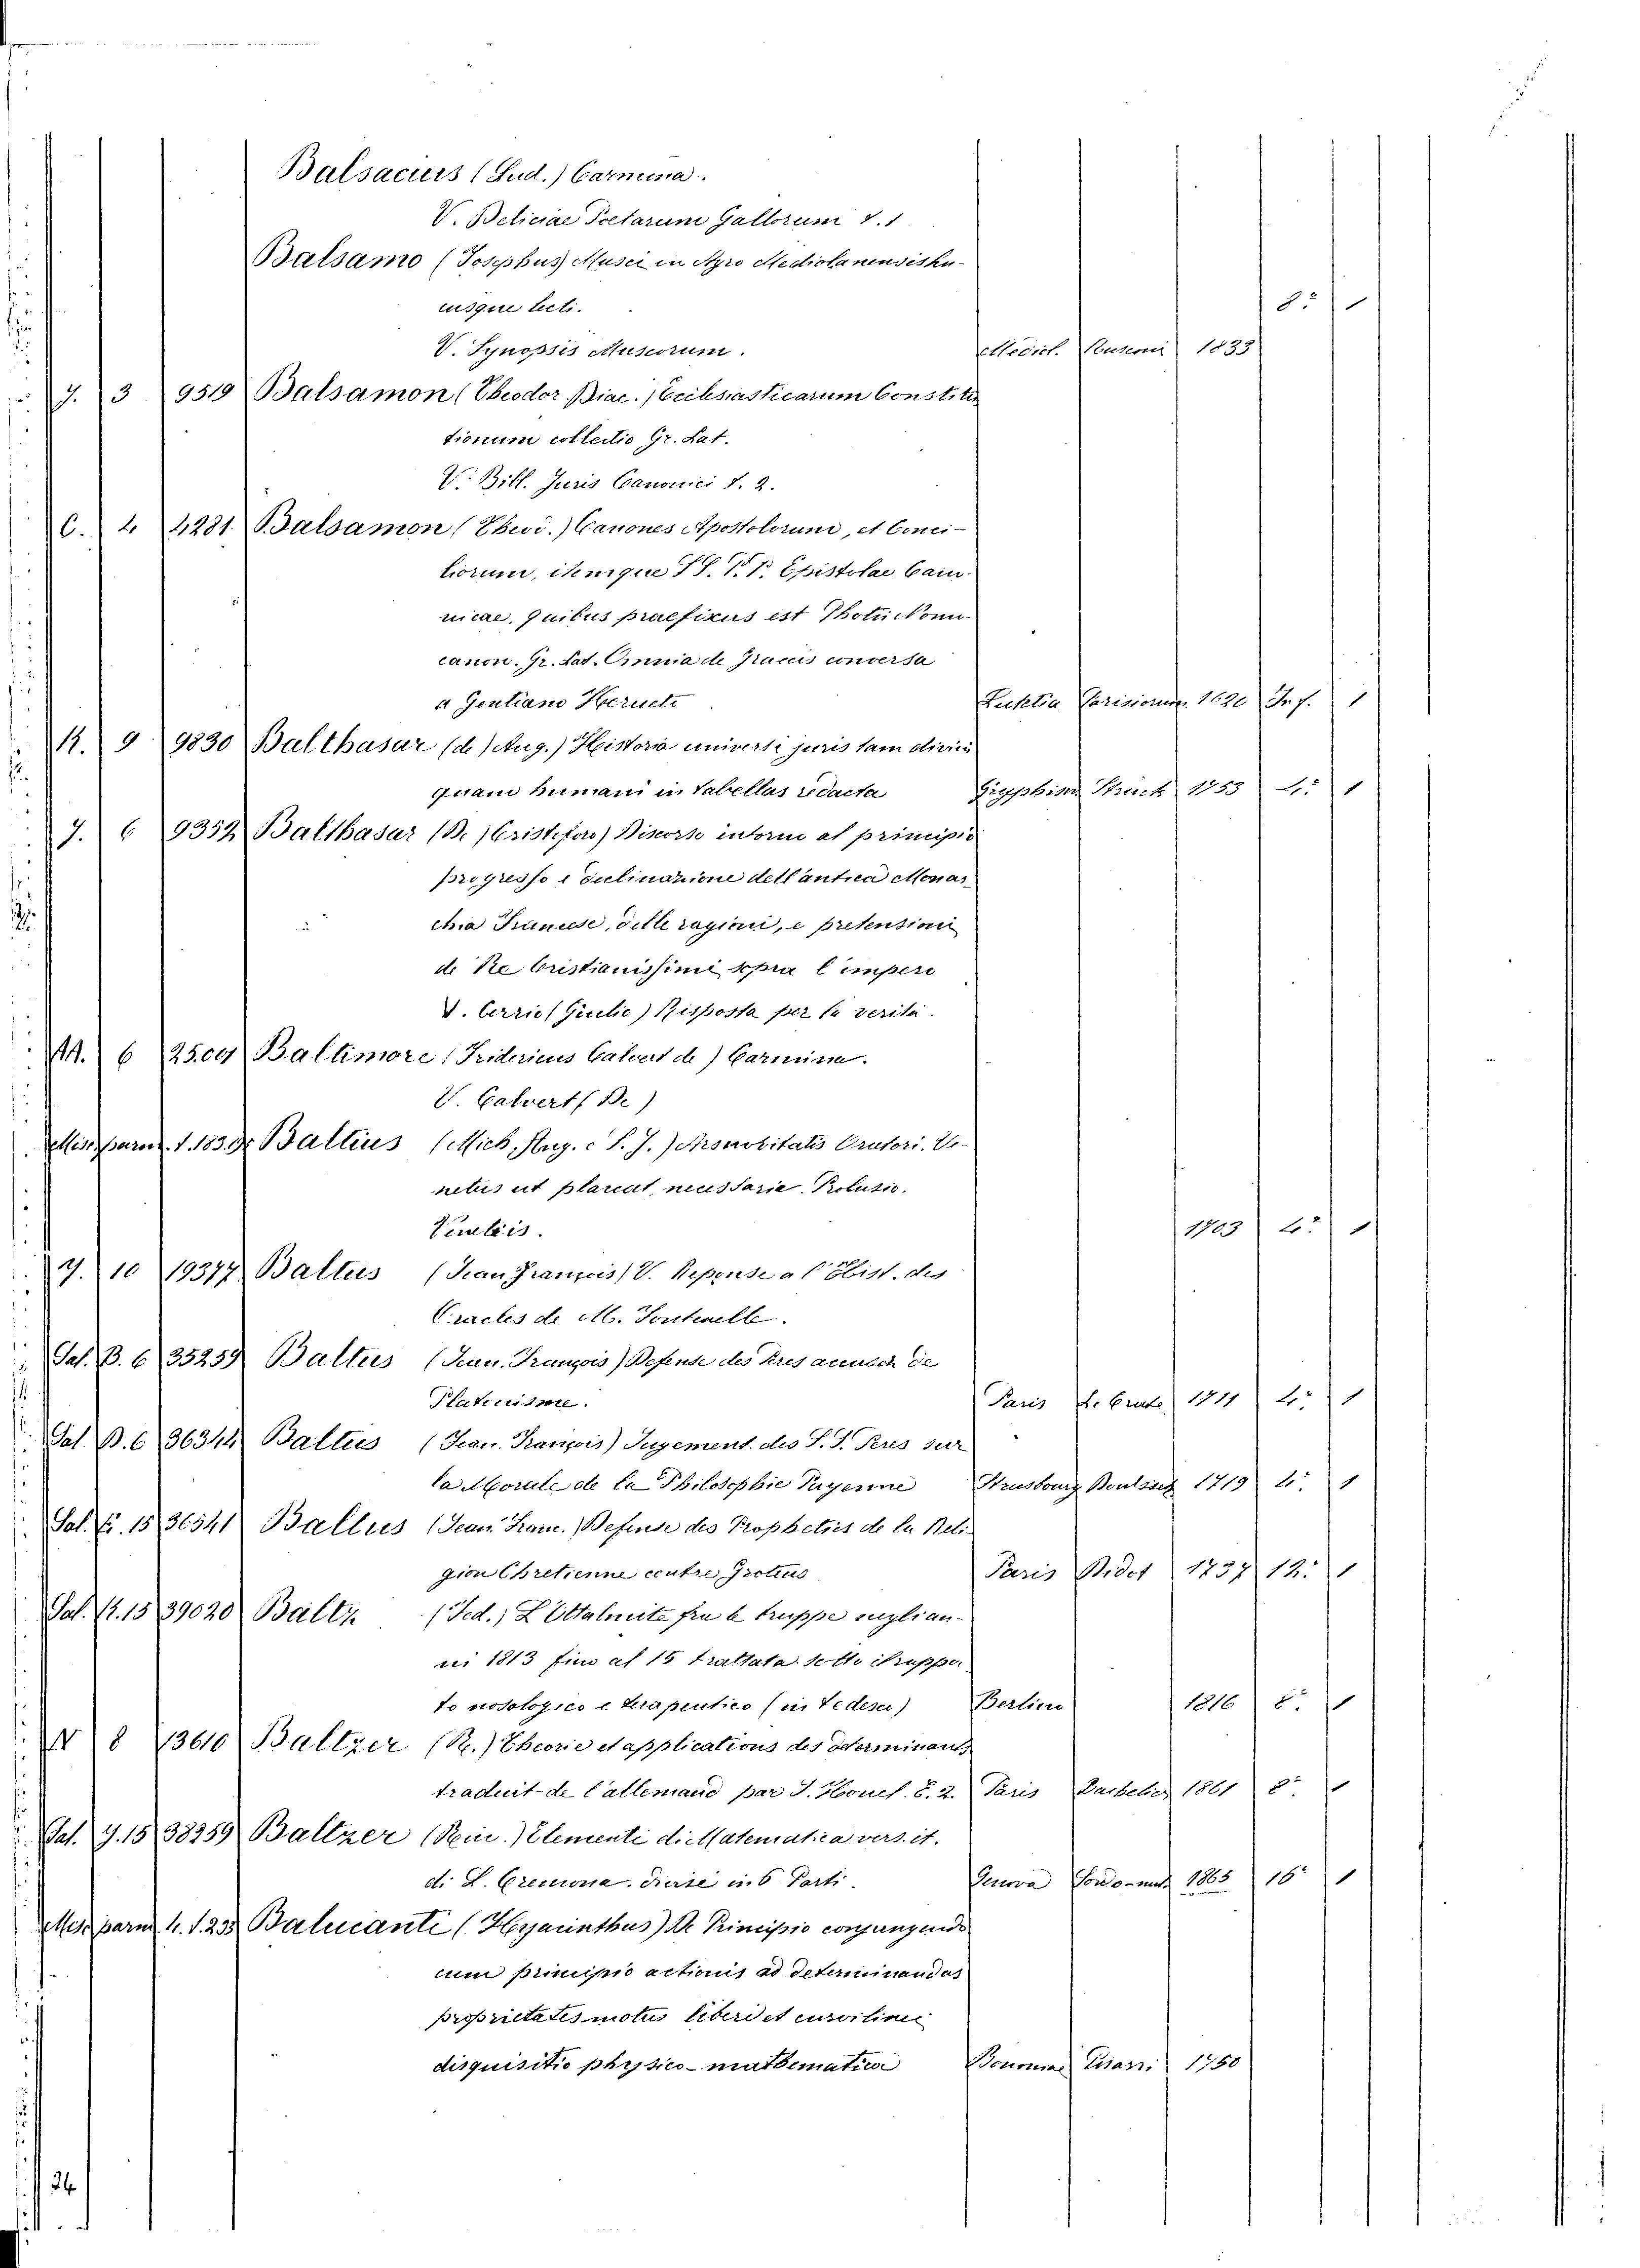 Balsacius (Lud.) Carmina.
V. Deliciae Poetarum Gallorum t. 1
Balsamo (Josephus) Musci in Agro Mediolanensi hu-
cusque lecti. 8.° 1
V. Synopsis Muscorum. Mediol. Rusconi 1833
J. 3 9519 Balsamon (Theodor Diac.) Ecclesiasticarum Constitu
tionum collectio Gr. Lat.
V. Bibl. Juris Canonici t. 2.
C. 4 4281 Balsamon (Theod.) Canones Apostolorum, et Conci-
liorum, itemque SS. P.P. Epistolae Cano-
nicae, quibus praefixus est Photii Nomo-
canon. Gr. Lat. Omnia de Graecis conversa
a Gentiano Herveti Lutetia Parisiorum 1620 In f. 1
R. 9 9830 Balthasar (de) Aug.) Historia universi juris tam divini
quam humani in tabellas redacta Gryphisw Struck 1753 4.° 1
J. 6 9352 Balthasar (De) Cristoforo) Discorso intorno al principio
progresso e declinazione dell'antica Monar
chia Francese, delle ragioni, e pretensioni
de Re Cristianissimi sopra l'impero
V. (Giulio) Risposta per la verità.
M. 6 2500 Baltimore (Fridericus Calvert de) Carmina.
V. Calvert (De)
Misc. parm. t. 183. Baltius (Mich. Aug. e S. J.) Oratori. Ve-
netus ut placeat, necessaria. Prolusio.
Venetiis. 1703 4.° 1
J. 10 19377 Baltus (Jean François) V. Reponse a l'Hist. des
Oracles de M. Fontenelle.
Sal. B. 6 35259 Baltus (Jean. François) Defense des Peres accusez de
Platonisme. Paris 1711 4.° 1
Sal. B. 6 36344 Baltus (Jean. François) Jugement des S.S. Peres sur
la Morale de la Philosophie Payenne Strasbourg 1719 4.° 1
Sal. 15 36541 Baltus (Jean Franc.) Defense des Propheties de la Reli-
gion Chretienne contre Grotius Paris Didot 1737 12.° 1
Sal. R. 15 39020 Baltz (Ted.) L'Ottalmite fra le truppe negli an-
ni 1813 fino al 15 trattata sotto il rappor
to nosologico e terapeutico (in tedesco) Berlino 1816 8.° 1
N 8 13610 Baltzer (R.) Theorie et applications des determinants
traduit de l'allemand par J. Houel. E. 2. Paris Bachelier 1861 8° 1
Sal. J. 15 38959 Baltzer (Ric.) Elementi di Matematica vers. it.
di L. Cremona. Divisé in 6 Parti. Genova Sordo-muti 1865 16° 1
Misc. parm. 4. t. 233 Balucanti (Hyacinthus) De Principio conjungendo
cum principio actionis ad determinandas
proprietates motus liberi et curvilinei
disquisitio physico-mathematica Bononiae Pisarri 1750
34